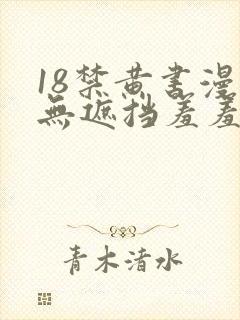 18禁黄书漫
無遮挡羞羞
青木清水